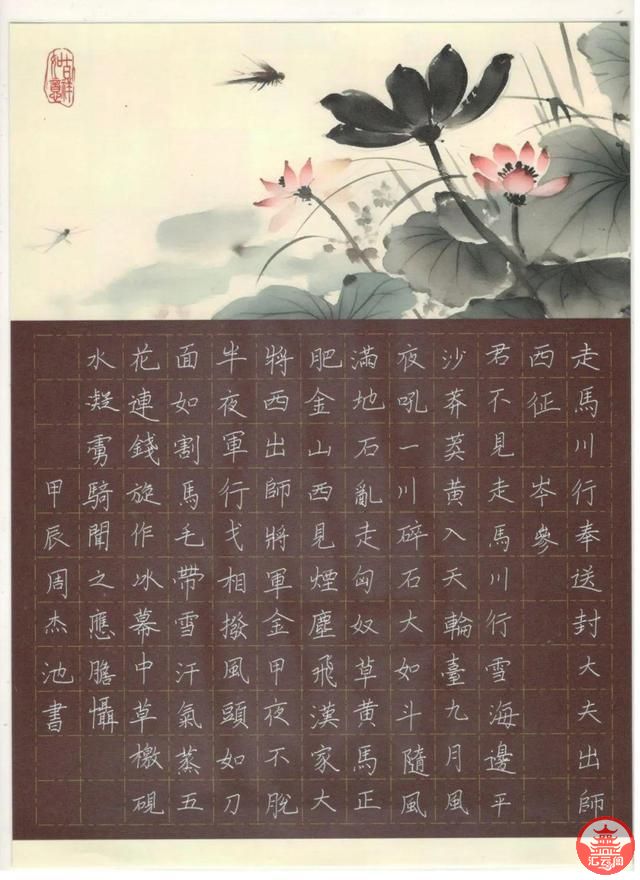 吉祥如意
走馬川行奉送封大夫出師
西征 岑參
君不見走馬川行雪海邊平
沙莽莽黃入天輪臺九月風
夜吼一川碎石大如斗隨風
滿地石亂走匈奴草黃馬正
肥金山西見煙塵飛漢家大
將西出師將軍金甲夜不脫
半夜軍行戈相撥風頭如刀
面如割馬毛帶雪汗氣蒸五
花連錢旋作冰幕中草檄硯
水凝虜騎聞之應膽懾
甲辰周杰池書
汇云阁